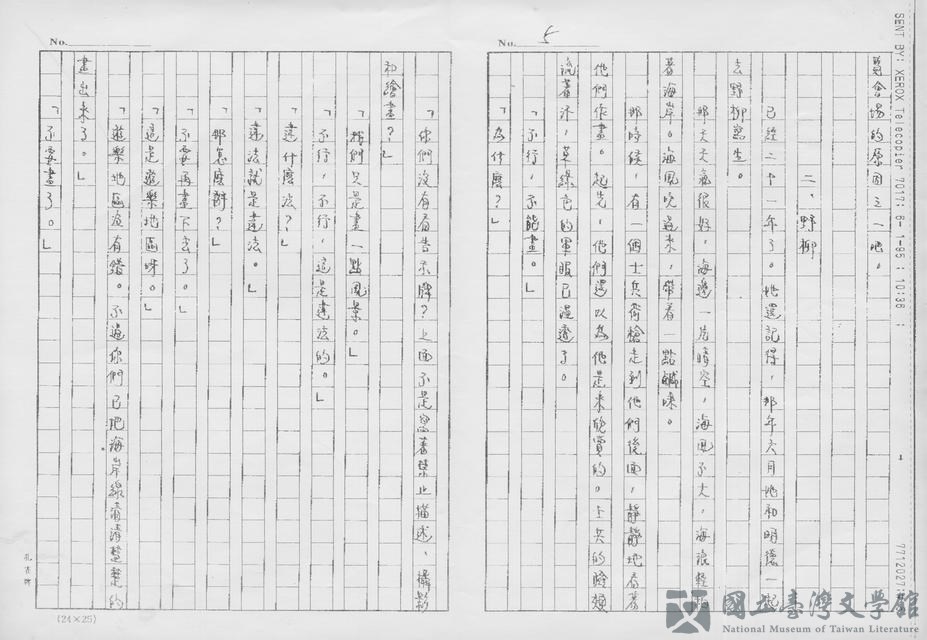 SENT BY: XEROX Telecopier 7017; 6- 1-95 ; 10:36 ;
7712027
No. 5
覽會場的原因之一吧。
二、野柳
已經二十一年了。她還記得，那年六月她和明德一起
去野柳寫生。
那天天氣很好，海邊一片晴空，海風不大，海浪輕拍
著海岸。海風吹過來，帶著一點鹹味。
那時候，有一個士兵荷槍走到他們後面，靜靜地看著
他們作畫。起先，他們還以為他是來欣賞的。士兵的臉頰
流著汗，草綠色的軍服已濕透了。
「不行，不能畫。」
「為什麼？」
No.
「你們沒有看告示牌？上面不是寫著禁止描述、攝影
和繪畫？」
「我們只是畫一點風景。」
「不行，不行，這是違法的。」
「違什麼法？」
「違法就是違法。」
「那怎麼辦？」
「不要再畫下去了。」
「這是遊樂地區呀。」
「遊樂地區沒有錯。不過你們已把海岸線清清楚楚的
畫出來了。」
「不要畫了。」
(24×25)
國立臺灣文學館
National Museum of Taiwan Literature